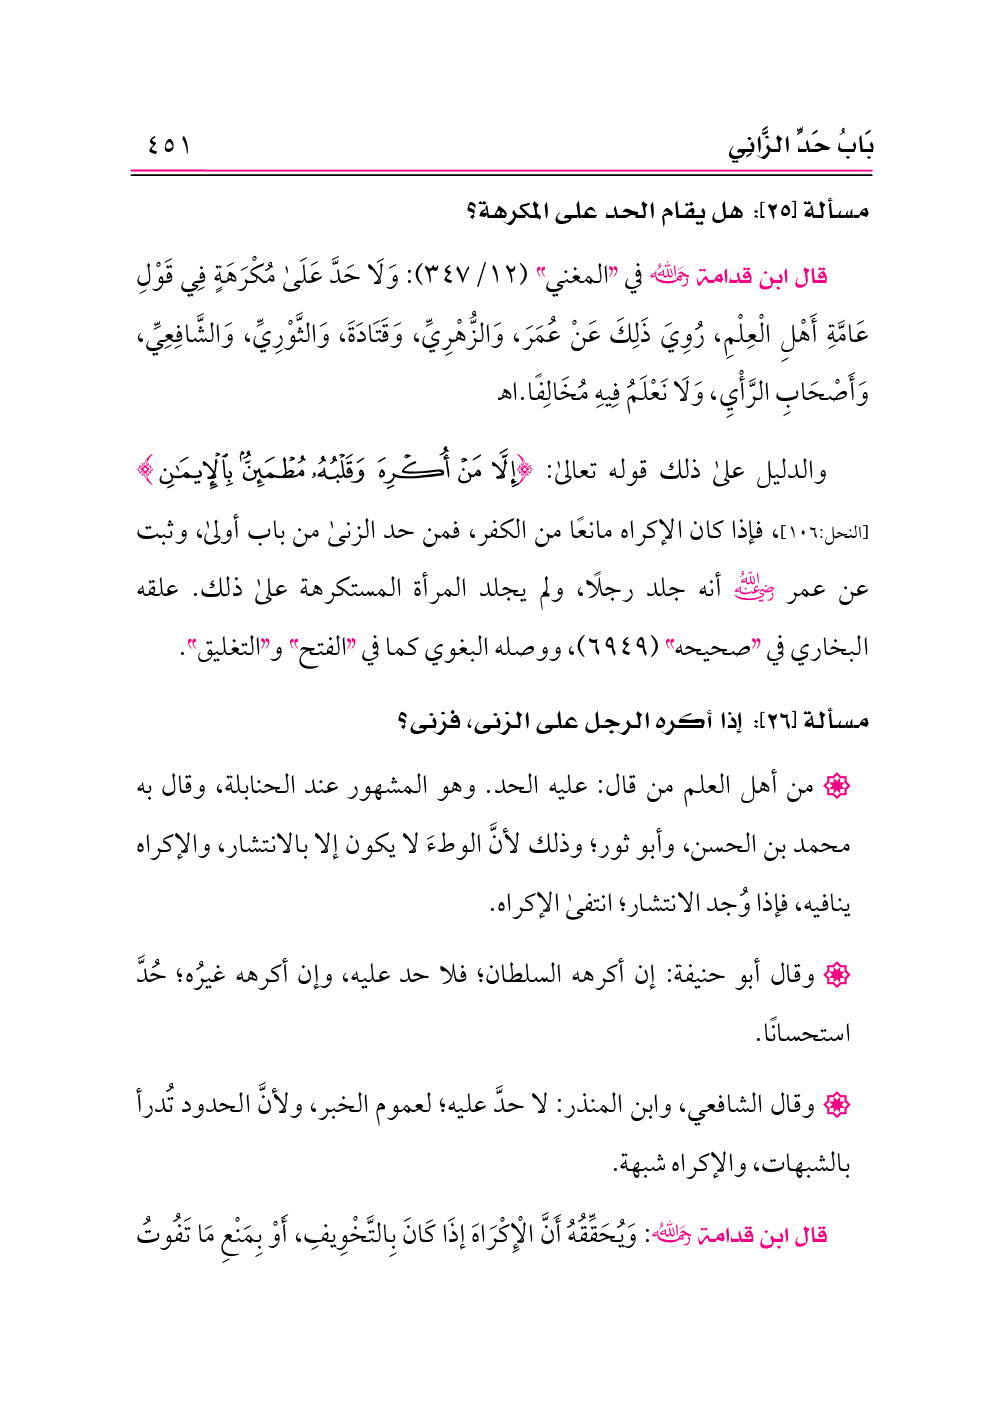 بَابُ حَدِّ الزَّانِي ٤٥١
مسألة [٢٥]: هل يقام الحد على المكرهة؟
قال ابن قدامة رحمه الله في "المغني" (١٢/ ٣٤٧): وَلَا حَدَّ عَلَىٰ مُكْرَهَةٍ فِي قَوْلِ
عَامَّةِ أَهْلِ الْعِلْمِ، رُوِيَ ذَلِكَ عَنْ عُمَرَ، وَالزُّهْرِيِّ، وَقَتَادَةَ، وَالثَّوْرِيِّ، وَالشَّافِعِيِّ،
وَأَصْحَابِ الرَّأْيِ، وَلَا نَعْلَمُ فِيهِ مُخَالِفًا.اﻫ
والدليل علىٰ ذلك قوله تعالىٰ: ﴿إِلَّا مَنْ أُكْرِهَ وَقَلْبُهُۥ مُطْمَئِنٌّۢ بِٱلْإِيمَـٰنِ﴾
[النحل:١٠٦]، فإذا كان الإكراه مانعًا من الكفر، فمن حد الزنىٰ من باب أولىٰ، وثبت
عن عمر رضي الله عنه أنه جلد رجلًا، ولم يجلد المرأة المستكرهة علىٰ ذلك. علقه
البخاري في "صحيحه" (٦٩٤٩)، ووصله البغوي كما في "الفتح" و"التغليق".
مسألة [٢٦]: إذا أكره الرجل على الزنى، فزنى؟
من أهل العلم من قال: عليه الحد. وهو المشهور عند الحنابلة، وقال به
محمد بن الحسن، وأبو ثور؛ وذلك لأنَّ الوطءَ لا يكون إلا بالانتشار، والإكراه
ينافيه، فإذا وُجد الانتشار؛ انتفىٰ الإكراه.
وقال أبو حنيفة: إن أكرهه السلطان؛ فلا حد عليه، وإن أكرهه غيرُه؛ حُدَّ
استحسانًا.
وقال الشافعي، وابن المنذر: لا حدَّ عليه؛ لعموم الخبر، ولأنَّ الحدود تُدرأ
بالشبهات، والإكراه شبهة.
قال ابن قدامة رحمه الله: وَيُحَقِّقُهُ أَنَّ الْإِكْرَاهَ إذَا كَانَ بِالتَّخْوِيفِ، أَوْ بِمَنْعِ مَا تَفُوتُ